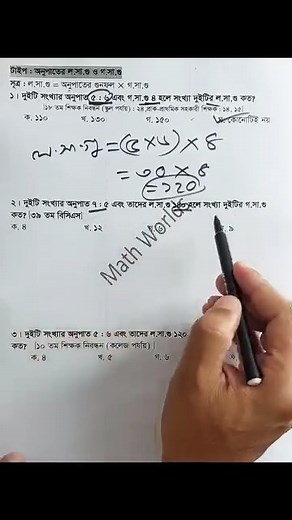 টাইপ : অনুপাতের ল.সা.গু ও গ.সা.গু
সূত্র : ল.সা.গু = অনুপাতের গুনফল × গ.সা.গু
১। দুইটি সংখ্যার অনুপাত ৫ : ৬ এবং গ.সা.গু ৪ হলে সংখ্যা দুইটির ল.সা.গু কত?
[১৮ তম শিক্ষক নিবন্ধন (স্কুল পর্যায়) : ২৪, প্রাক-প্রাথমিক সহকারী শিক্ষক : ১৪, ১৫]
ক. ১১০ খ. ১৩০ গ. ১৫০ কোনোটিই নয়
ল.সা.গু = (৫×৬) × ৪
= ৩০ × ৪
= ১২০
২। দুইটি সংখ্যার অনুপাত ৭ : ৫ এবং তাদের ল.সা.গু ১৪০ হলে সংখ্যা দুইটির গ.সা.গু
কত? [৩৯ তম বিসিএস]
ক. ৪ খ. ১২ ৬ ৯
Math World
৩। দুইটি সংখ্যার অনুপাত ৫ : ৬ এবং তাদের ল.সা.গু ১২০
কত? [১০ তম শিক্ষক নিবন্ধন (কলেজ পর্যায়)]
ক. ৪ খ. ৫ গ. ৬